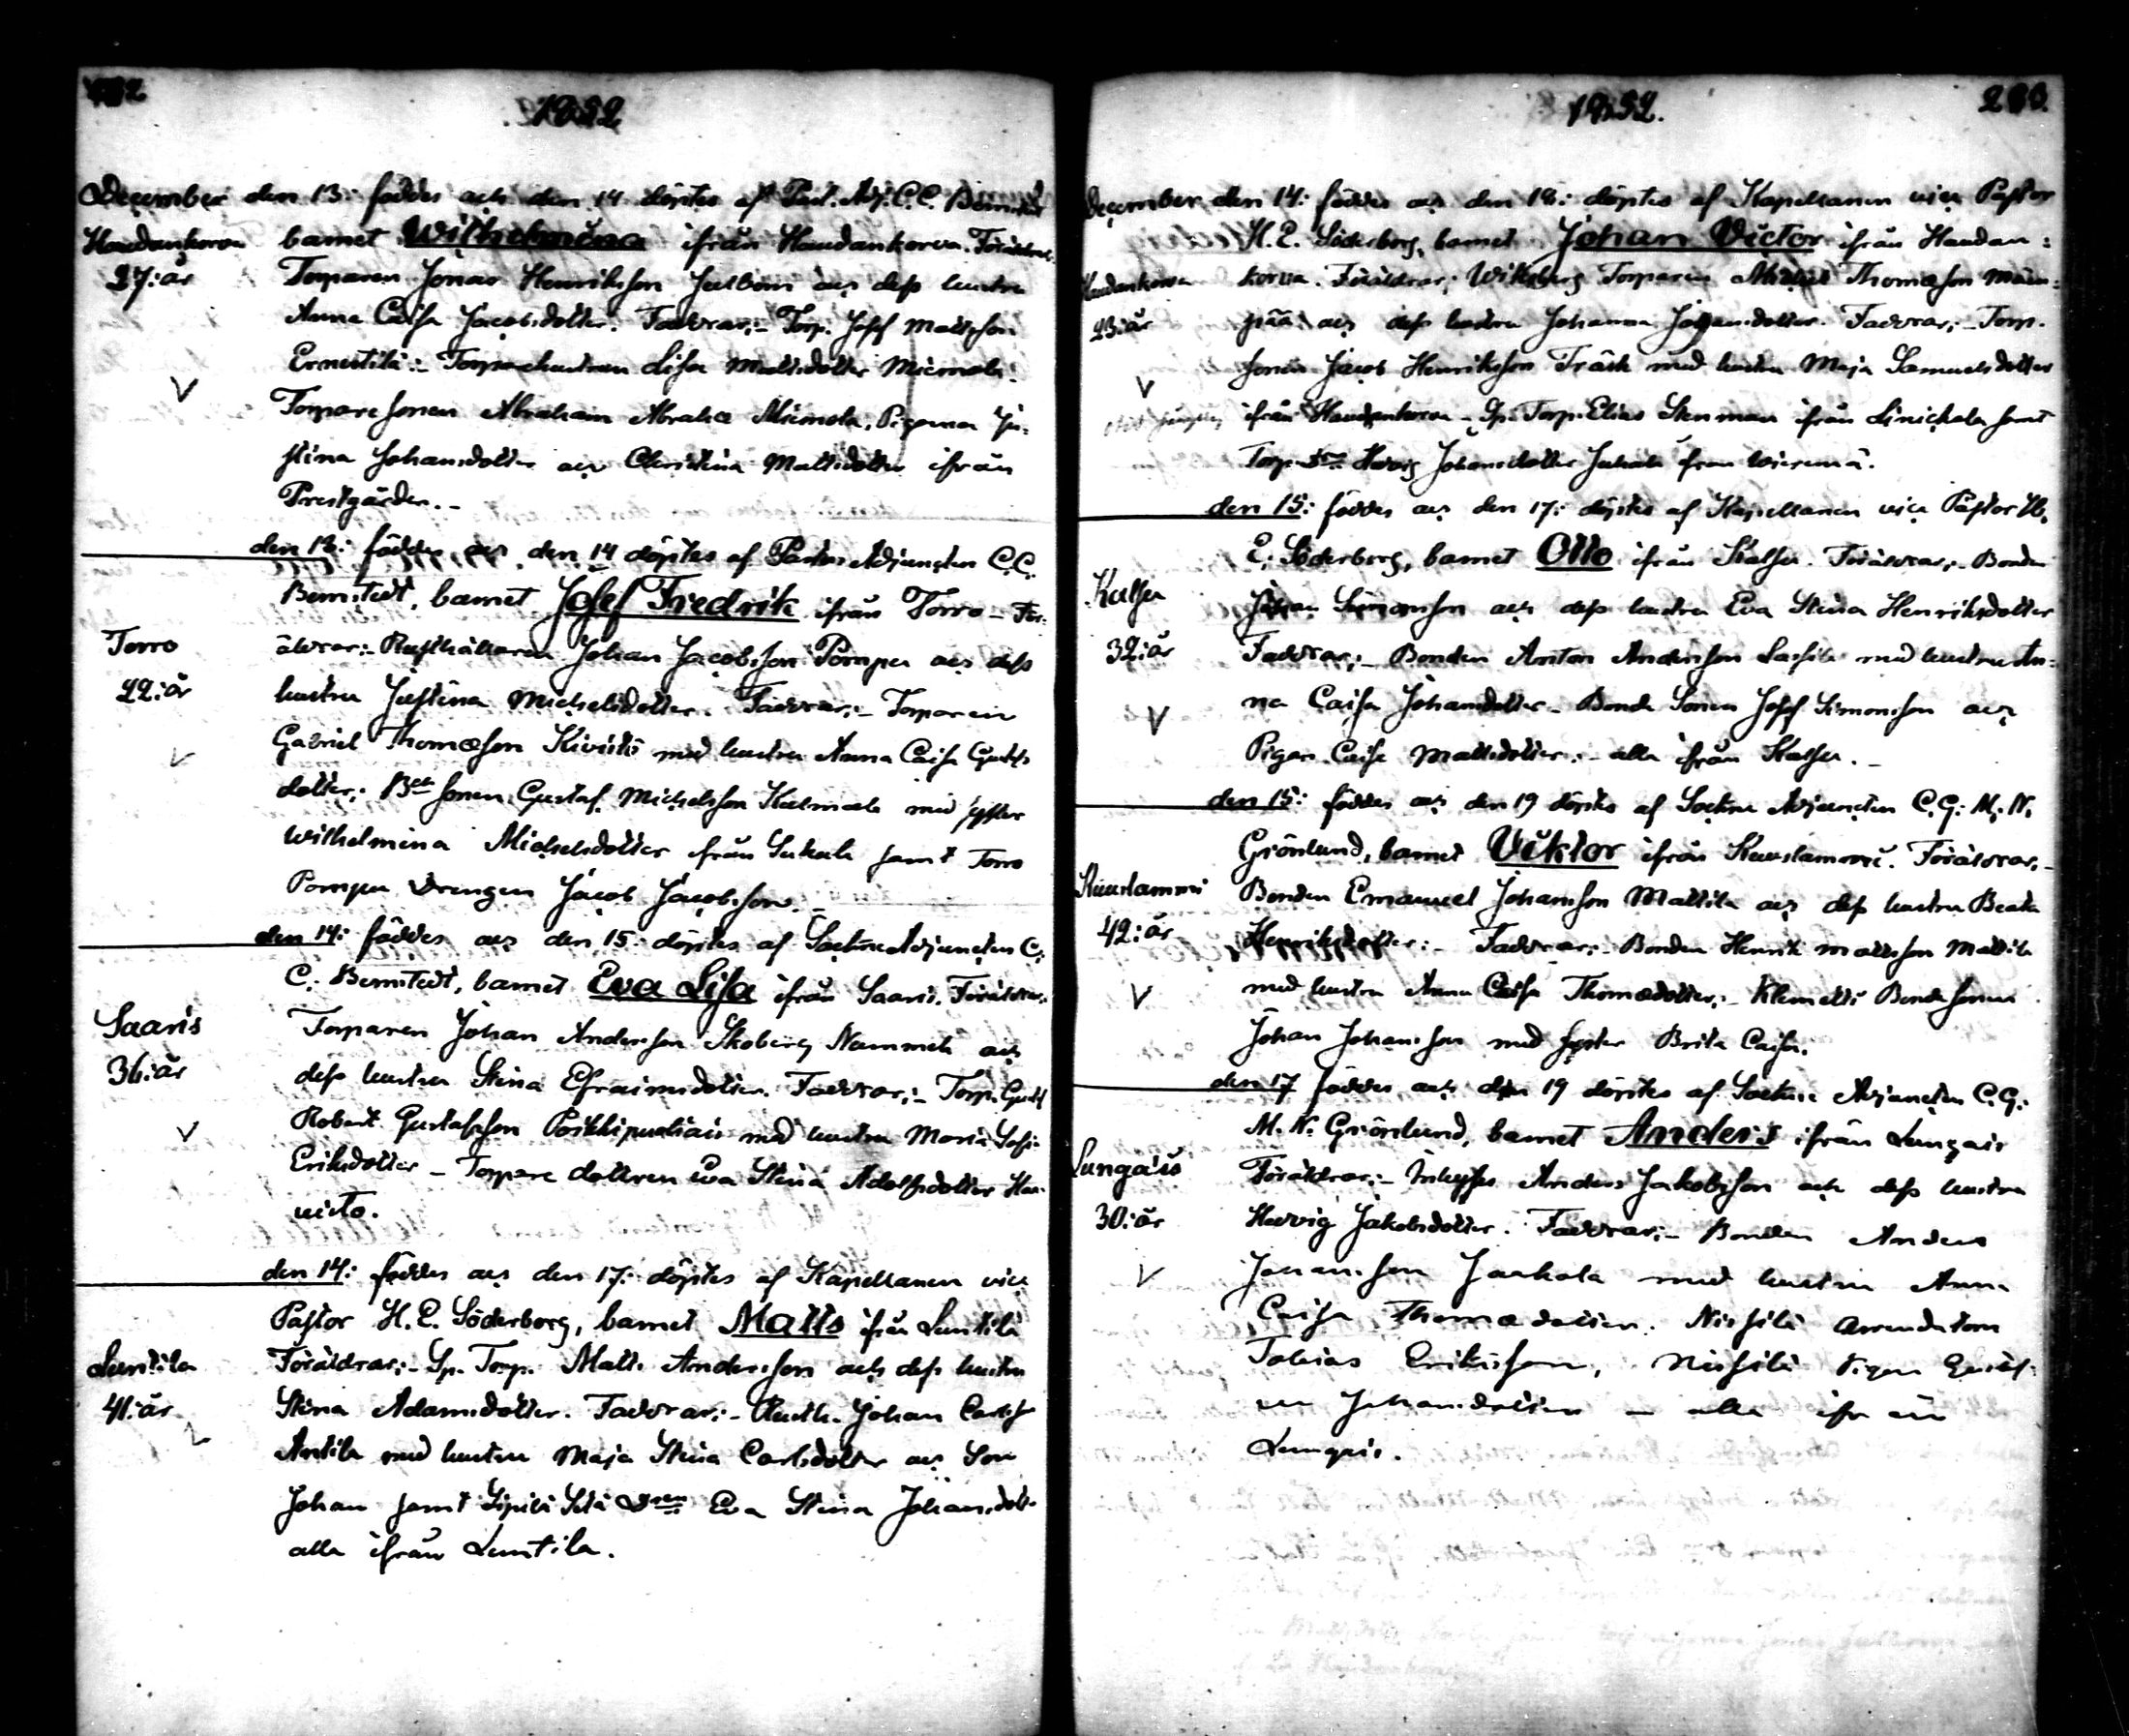 1852
December den 13: föddes och den 14 döptes af Past. Adj. C.C. Bernstedt
Haudankorva barnet Wilhelmina ifrån Haudankorva. Föräldrar:
27: år Torparen Jonas Henriksson och dess hustru
Anna Caisa Jacobsdotter. Faddrar:- Torp. Josef Mattsson
Ernestilä:- Torparehustrun Lisa Mattsdotter
Torpare sonen Abraham, Pigorna Ju-
stina Johansdotter och Christina Mattsdotter ifrån
Prestgården.-
den 13: föddes och den 14 döptes af Pastors Adjuncten C.C.
Bernstedt, barnet Josef Fredrik ifrån Torro - För-
Torro äldrar:- Rusthållaren Johan Jacobsson Pompu och dess
42: år hustru Justina Michelsdotter. Faddrar:- Torparen
Gabriel Thomasson Kivistö med hustru Anna Caisa Gust.
dotter; Bde sonen Gustaf Michelsson med syster
Wilhelmina Michelsdotter ifrån samt Torro
Pompu Drengen Jacob Jacobsson.-
den 14: föddes och den 15: döptes af Sockne Adjuncten C:
C: Bernstedt, barnet Eva Lisa ifrån Saaris. Föräldrar:
Saaris Torparen Johan Andersson Skoberg Nummela och
36: år dess hustru Stina Efraimsdotter. Faddrar:- Torp. Gust
Robert Gustafsson med hustru Maria Sofi-
Eriksdotter - Torpare dottren Eva Stina Adolfsdotter
den 14: föddes och den 17: döptes af Kapellanen vice
Pastor H.E. Söderborg, barnet Matts ifrån Luntila
Luntila Föräldrar:- Sp. Torp. Matts Andersson och dess hustru
41: år Stina Adamsdotter. Faddrar:- Rusth. Johan Carlss
Antila med hustru Maja Stina Carlsdotter och Son
Johan samt Sipilä Eva Stina Johansdot-
alla ifrån Luntila.
1852.
December den 14: föddes och den 18: döptes af Kapellanen vice Pastor
H.E. Söderborg, barnet Johan Victor ifrån Haudan:
Haudankorva korva. Föräldrar: Wiksberg Torparen Michel Thomasson Män-
43: år pää och dess hustru Johanna Johansdotter. Faddrar:- Torp.
sonen Jacob Henriksson Träsk med hustru Maja Samuelsdotter
ifrån Haudankorva - Sp. Torp. Elias Stenman ifrån samt
Torp. Hevig Johansdotter från
den 15: föddes och den 17: döptes af Kapellanen vice Pastor H.
E. Söderborg, barnet Otto ifrån Kalsu. Föräldrar:- Bonden
Kalsu Johan Simonsson och dess hustru Eva Stina Henriksdotter
32: år Faddrar:- Bonden Anton Andersson Lassila med hustru An-
na Caisa Johansdotter - Bonde Sonen Josef Simonsson och
Pigan Caisa Mattsdotter:- alla ifrån Kalsu.-
den 15: föddes och den 19 döptes af Sockne Adjuncten C.G: M: N.
Grönlund, barnet Viktor ifrån Kuuslammi. Föräldrar:-
Kuuslammi Bonden Emanuel Johansson Mattila och dess hustru Beata
42: år Henriksdotter:- Faddrar:- Bonden Henrik Mattsson Mattila
med hustru Anna Caisa Thomædotter:- Klemetti Bondesonen
Johan Johansson med syster Brita Caisa.
den 17 föddes och den 19 döptes af Sockne Adjuncten C.G:
M. N. Grönlund, barnet Anders ifrån Lungais
Lungais Föräldrar:- Inhyses Anders Jakobsson och dess hustru
30: år Hevig Jakobsdotter. Faddrar:- Bonden Anders
Johansson Jaakola med hustru Anna
Caisa Thomædotter. Nissilä Arrendatorn
Tobias Eriksson, Nissilä Pigan Gustaf-
va Johansdotter - alla ifrån
Lungais.